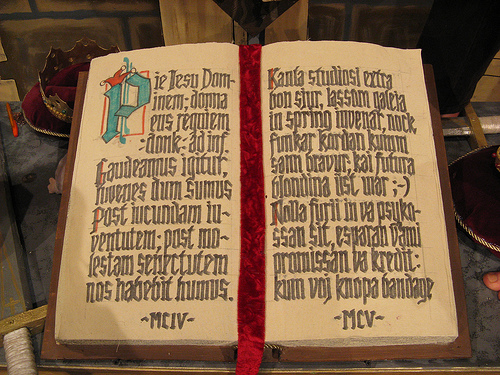 Pie Jesu Dom-
inem; donna
eus requiem
:donk: ad inf.
Gaudeamus igitur,
iuvenes dum sumus
Post iucundam iu-
ventutem, post mo-
lestam senectutem
nos habebit humus.
-MCIV-
Kanta studiosi extra
bon sjur, lassom galeia
in spring invenat, nock
funkar kordan kunom
sann bravur: kai futura
blondina ist mar ;-)
Nolla furii in va psyko-
ssan sit, esparan
promissan va kredit:
kum voj knopa bandage
-MCV-